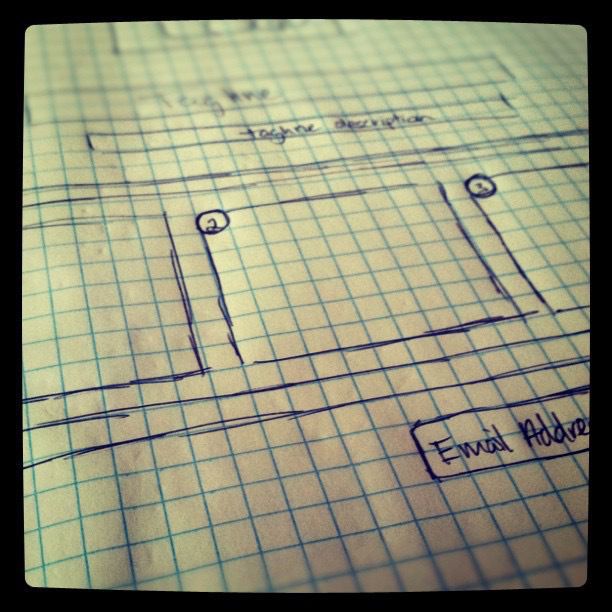 Tagline
tagline description
2
3
Email Addre